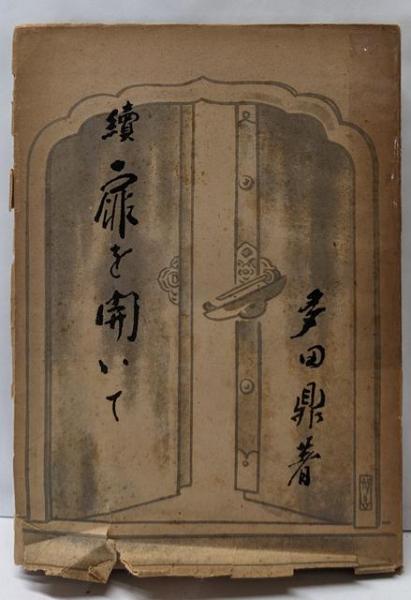 多田鼎著
續扉を開いて